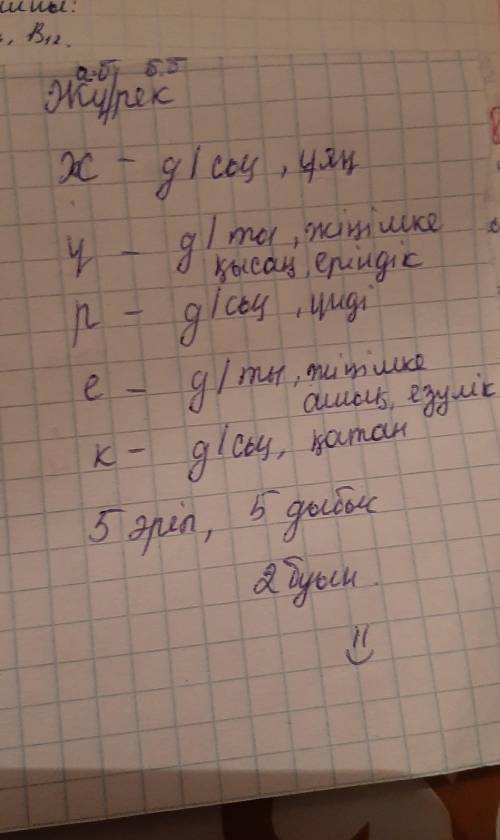 В12.
а.б б.б
Жүрек
ж – д/сыз, ұяң
ү – д/ты, жіңішке
қысаң, еріндік
р – д/сыз, үнді
е – д/ты, жіңішке
ашық, езулік
к – д/сыз, қатаң
5 әріп, 5 дыбыс
2 буын.